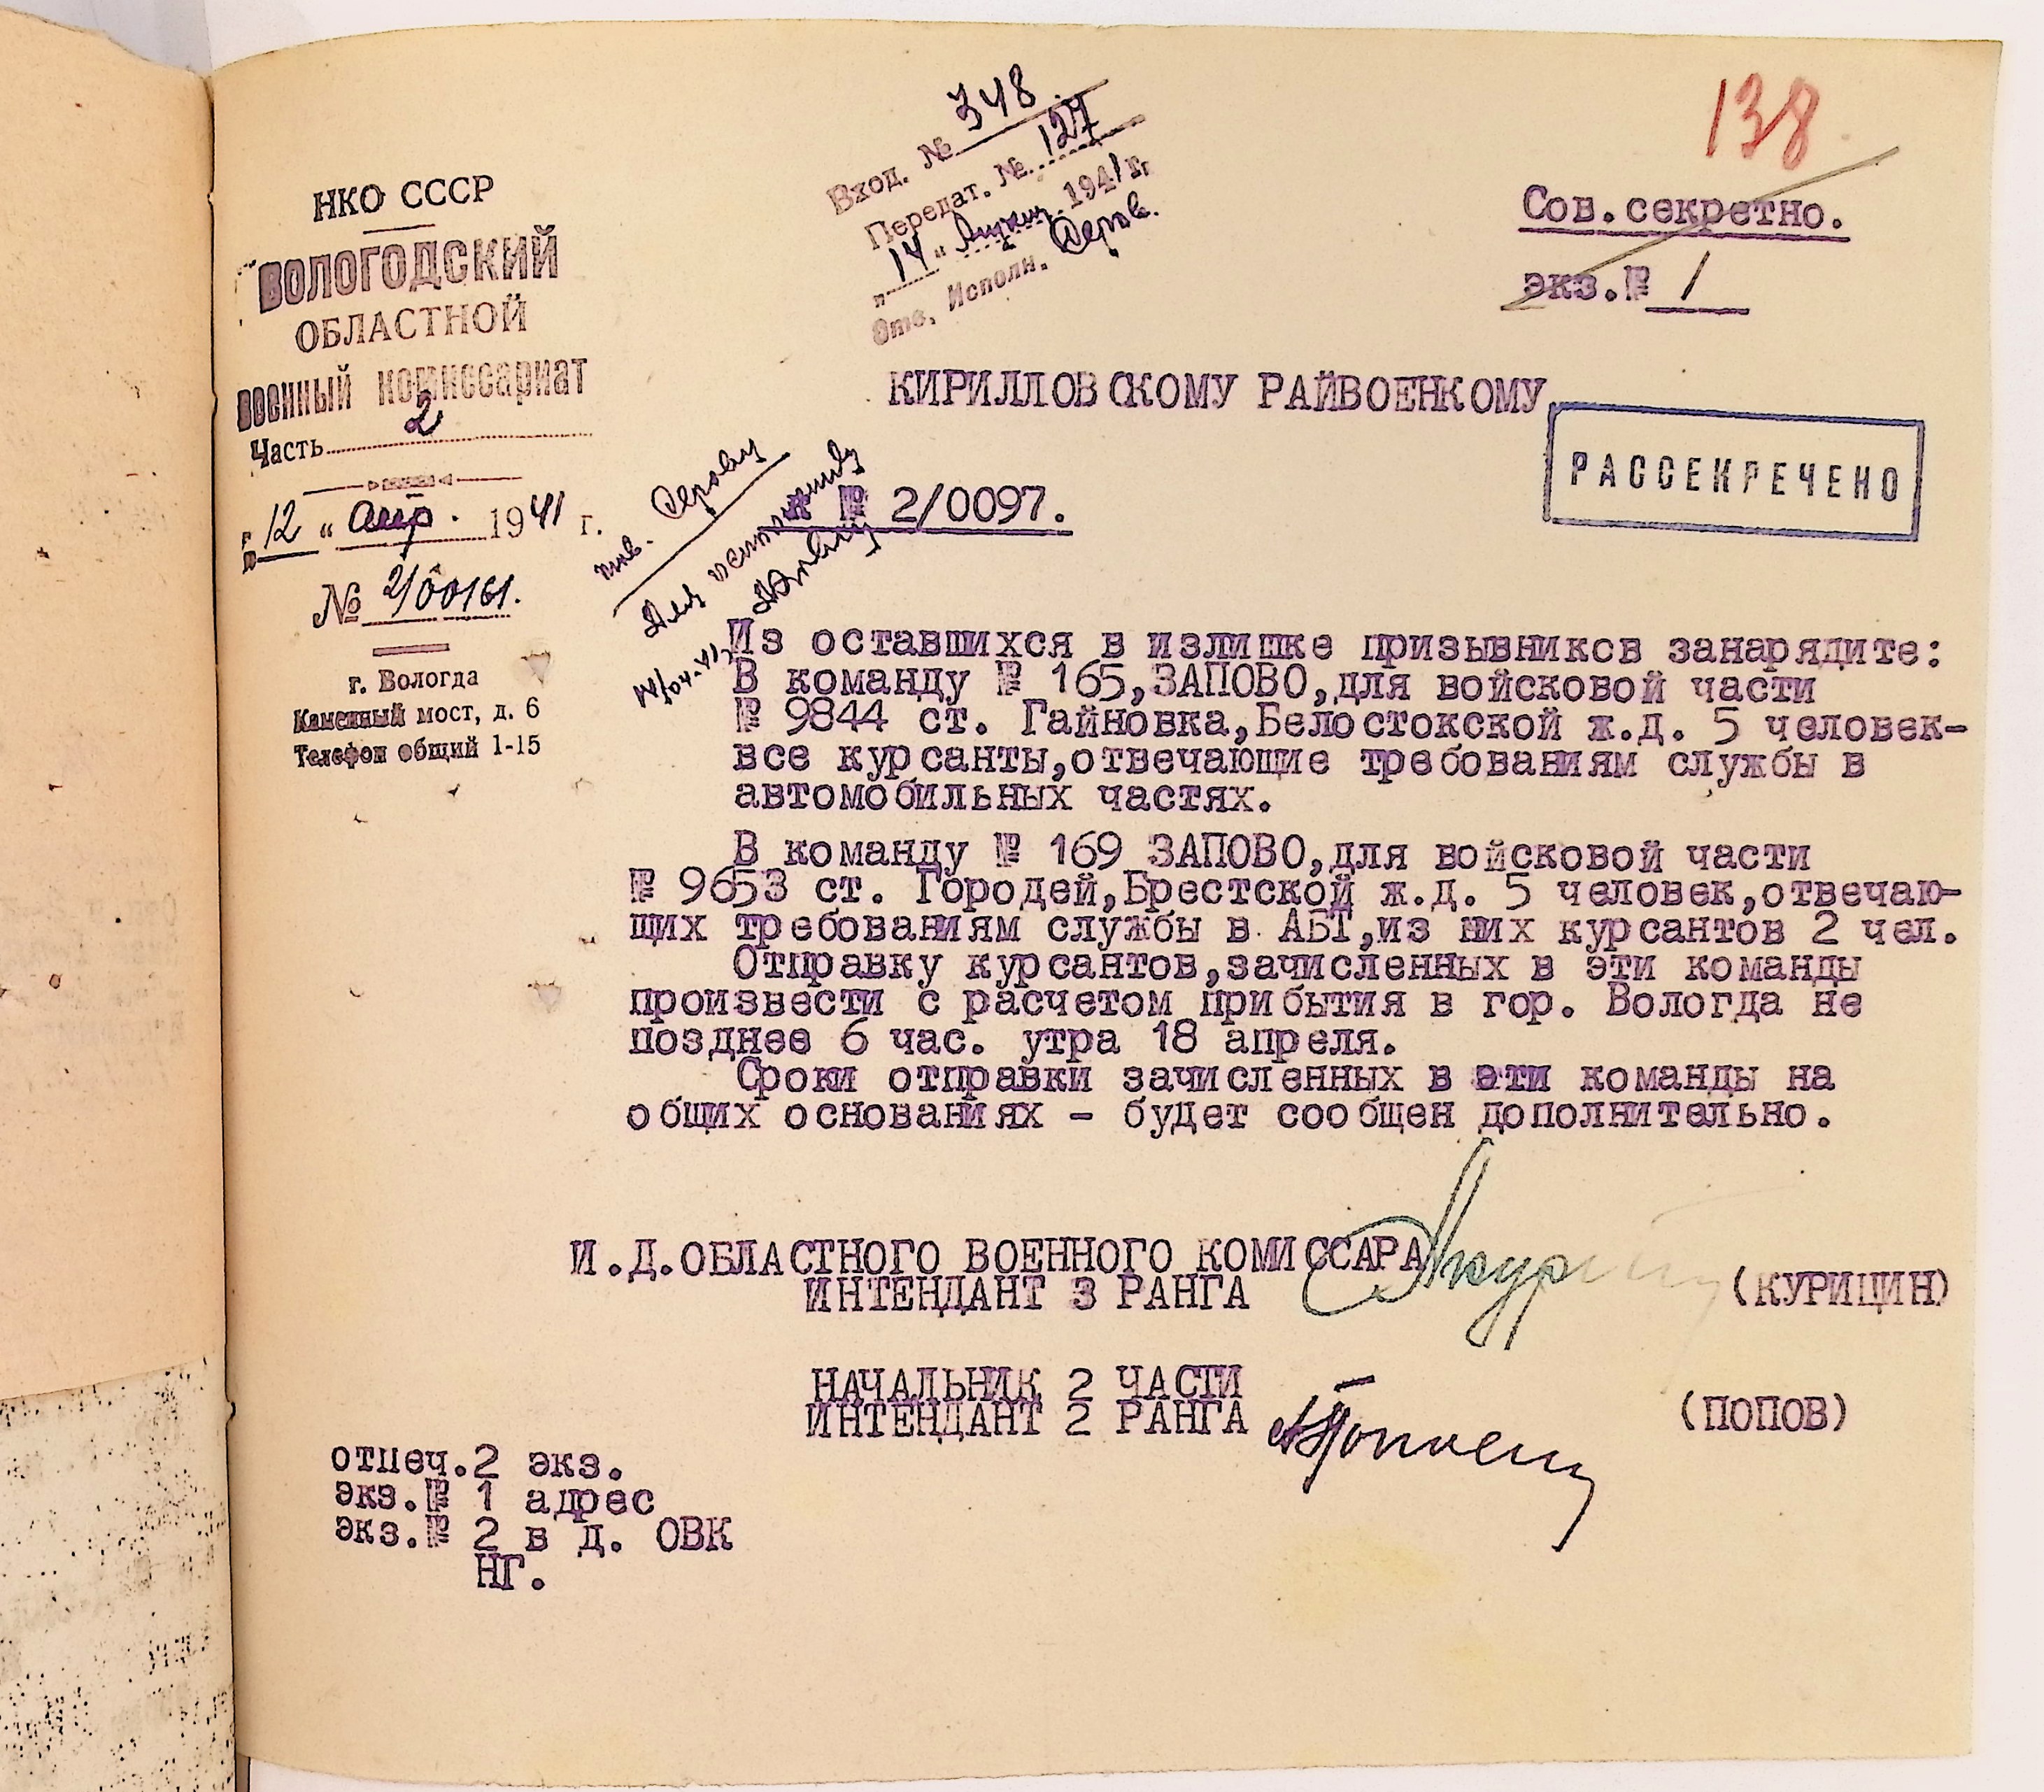 138
Вход. № 348
Передат. № 127
"14" 1941 г.
Отв. Исполн. Серов.
Сов.секретно.
экз.№ 1
НКО СССР
ВОЛОГОДСКИЙ
ОБЛАСТНОЙ
ВОЕННЫЙ КОМИССАРИАТ
Часть 2
"12" апр. 1941 г.
№ 2/00161.
г. Вологда
Каменный мост, д. 6
Телефон общий 1-15
КИРИЛЛОВСКОМУ РАЙВОЕНКОМУ
РАССЕКРЕЧЕНО
тов. Серову
Для
14/04-41
К № 2/0097.
Из оставшихся в излишке призывников занарядите:
В команду № 165,ЗАПОВО,для войсковой части
№ 9844 ст. Гайновка,Белостокской ж.д. 5 человек-
все курсанты,отвечающие требованиям службы в
автомобильных частях.
В команду № 169 ЗАПОВО,для войсковой части
№ 9653 ст. Городей,Брестской ж.д. 5 человек,отвечаю-
щих требованиям службы в АБТ,из них курсантов 2 чел.
Отправку курсантов,зачисленных в эти команды
произвести с расчетом прибытия в гор. Вологда не
позднее 6 час. утра 18 апреля.
Сроки отправки зачисленных в эти команды на
общих основаниях - будет сообщен дополнительно.
И.Д.ОБЛАСТНОГО ВОЕННОГО КОМИССАРА
ИНТЕНДАНТ 3 РАНГА (КУРИЦИН)
НАЧАЛЬНИК 2 ЧАСТИ
ИНТЕНДАНТ 2 РАНГА (ПОПОВ)
отпеч.2 экз.
экз.№ 1 адрес
экз.№ 2 в д. ОВК
НГ.